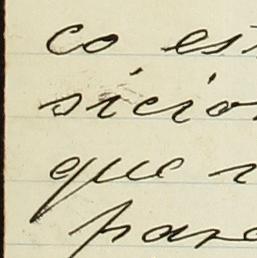 co es
sicio
que
pare